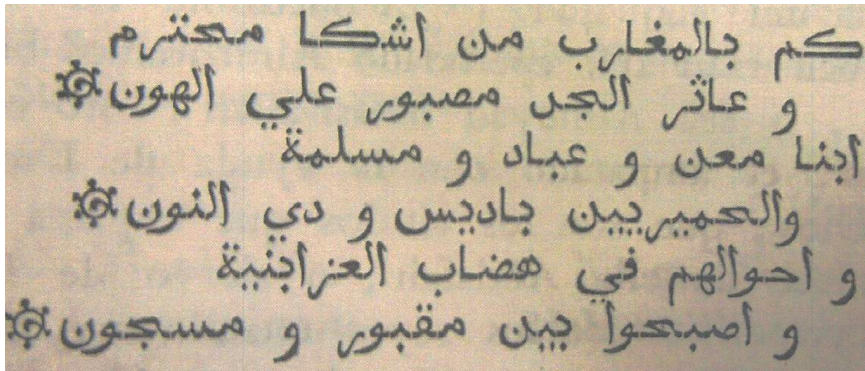 كم بالمغارب من اشكا محترم
و عاثر الجد مصبور علي الهون
ابنا معن و عباد و مسلمة
والحميريين باديس و دي النون
و احوالهم في هضاب العز ابنية
و اصبحوا بين مقبور و مسجون